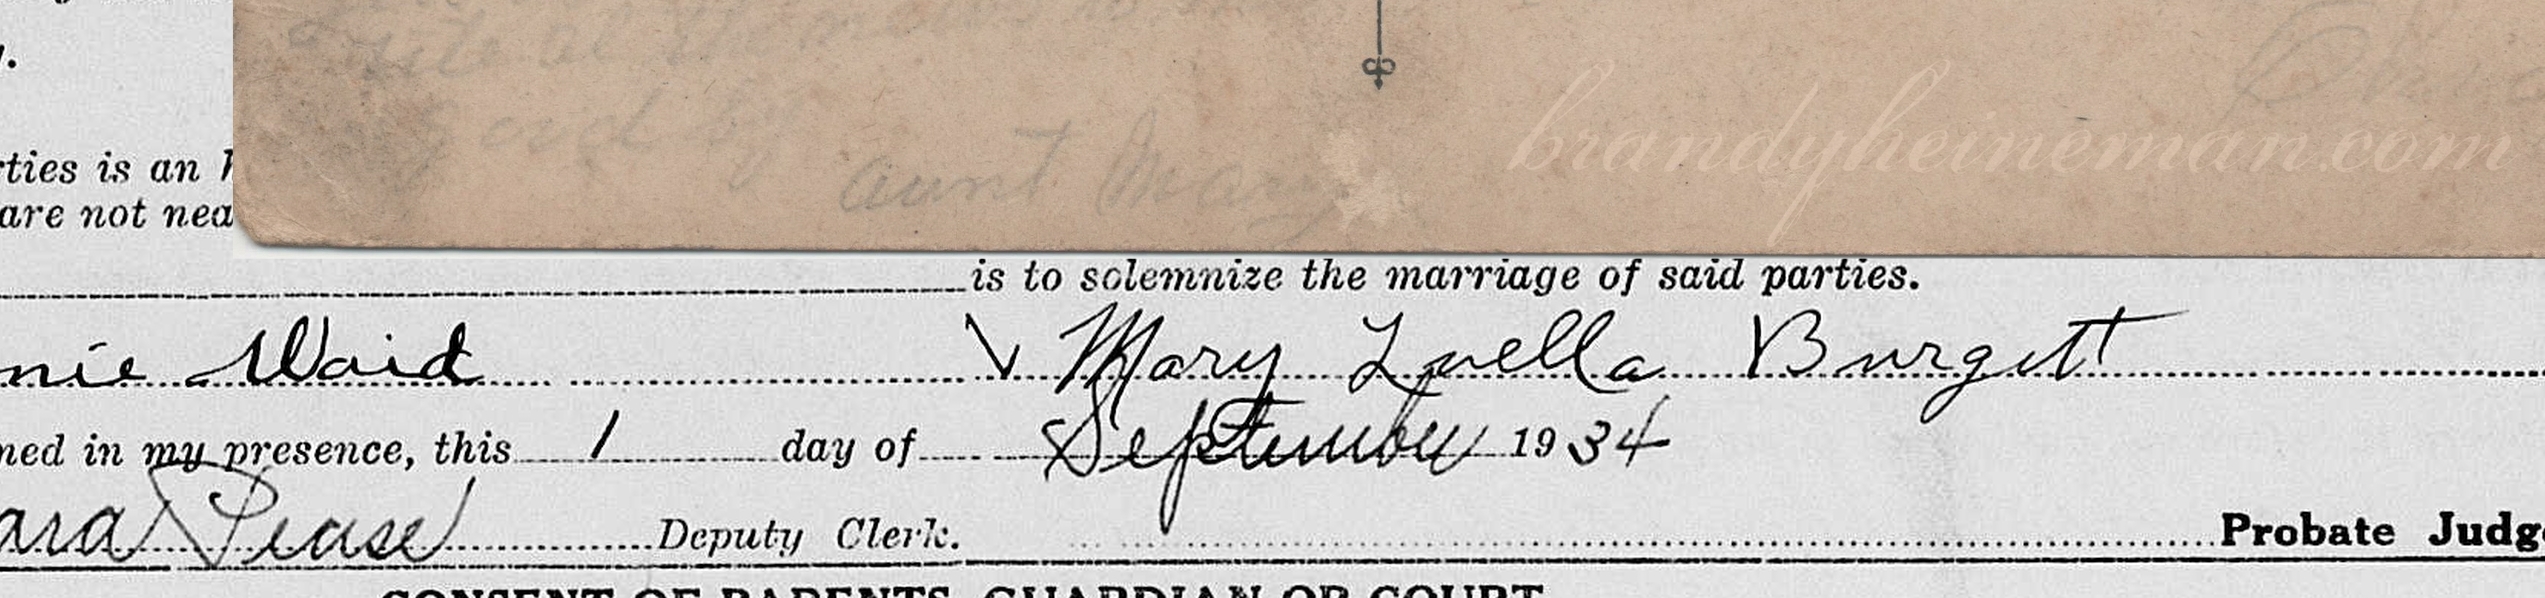 y.
at the
good by
aunt Mary
brandyheineman.com
rties is an h
are not nea
is to solemnize the marriage of said parties.
nie Waid Mary Luella Burgett
ned in my presence, this 1 day of September 1934
ara Pease Deputy Clerk. Probate Judge
CONSENT OF PARENTS, GUARDIAN OR COURT